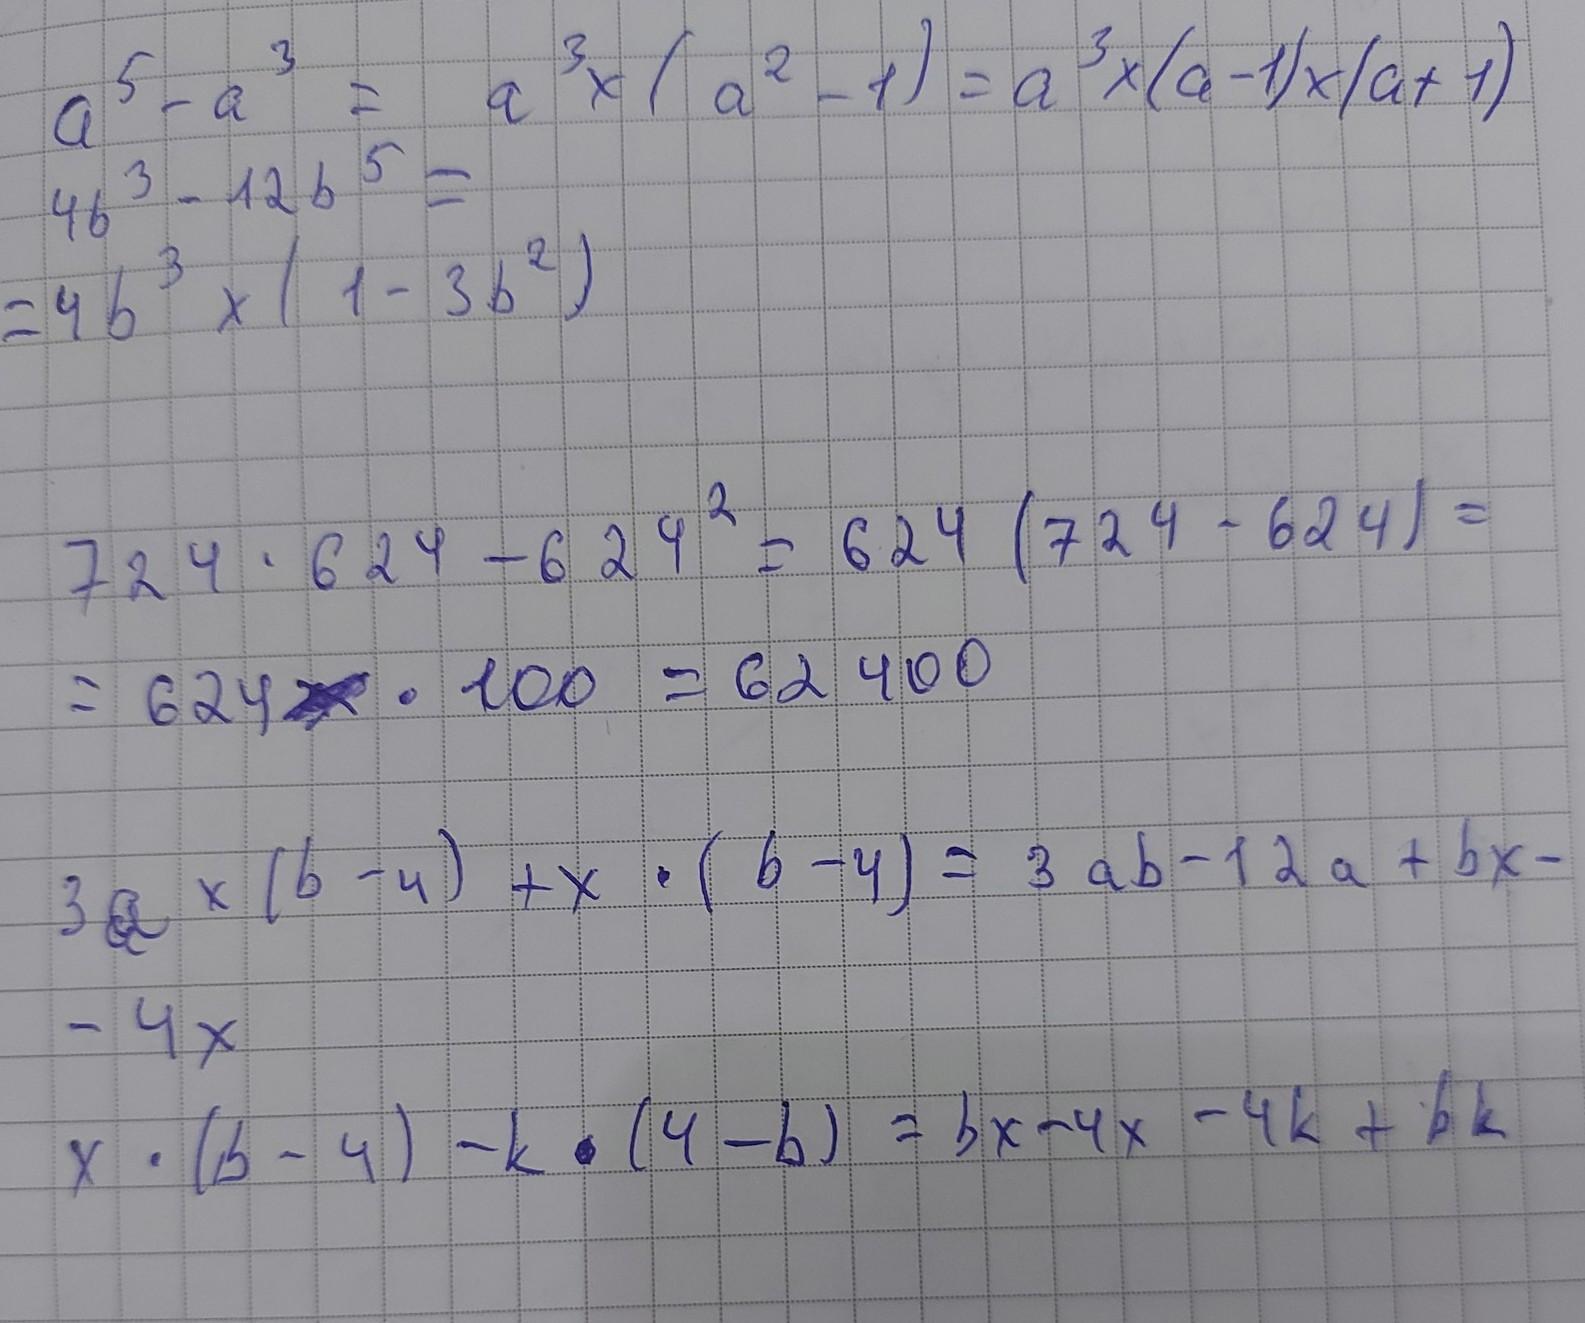 a⁵ - a³ = a³ x (a² - 1) = a³ x (a - 1) x (a + 1)
4b³ - 12b⁵ =
= 4b³ x (1 - 3b²)
724 · 624 - 624² = 624 (724 - 624) =
= 624 · 100 = 62400
3a x (b - 4) + x · (b - 4) = 3ab - 12a + bx -
- 4x
x · (b - 4) - k · (4 - b) = bx - 4x - 4k + bk